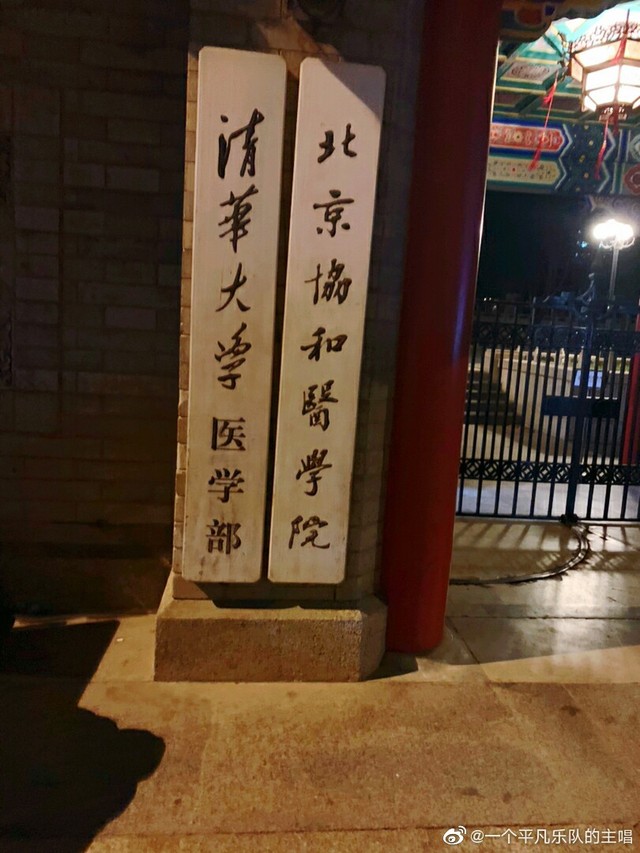 北京協和醫學院
清華大学医学部
@一个平凡乐队的主唱